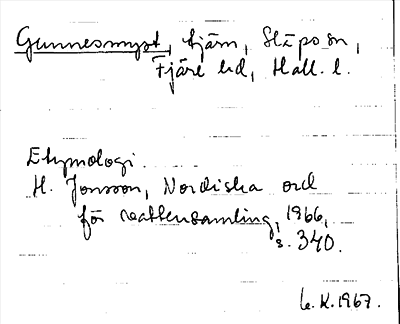 Gunnesmyst, tjärn, Släps sn,
Fjäre hd, Hall. l.
Etymologi.
H. Jonsson, Nordiska ord
för vattensamling, 1966,
s. 340.
L. K. 1967.